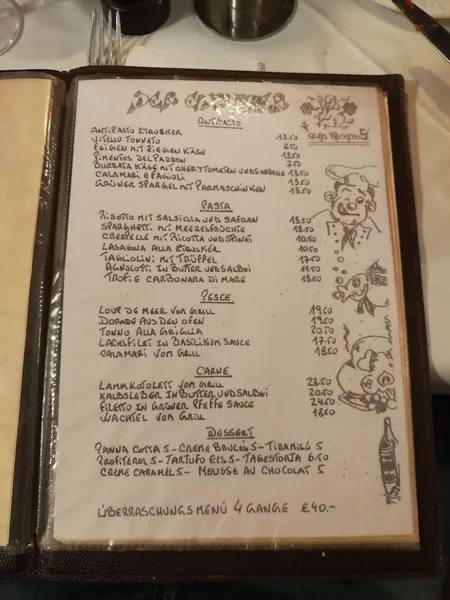 DER ETRUSKER
ANTIPASTO
ANTIPASTO ETRUSKER 13.50
VITELLO TONNATO 13.50
FEIGEN MIT ZIEGEN KÄSE 8.50
PIMENTOS DEL PADRON 7.50
BURRATA KÄSE MIT CHERYTOMATEN UND SARDELLE 13.50
CALAMARI E FAGIOLI 13.50
GRÜNER SPARGEL MIT PARMASCHINKEN 13.50
PASTA
RISOTTO MIT SALSICCIA UND SAFRAN 13.50
SPARGHETTI MIT MEERESFRÜCHTE 13.50
CRESPELLE MIT RICOTTA UND SPINAT 10.50
LASAGNA ALLA ETRUSKER 10.50
TAGLIOLINI MIT TRÜFFEL 17.50
AGNOLOTTI IN BUTTER UND SALBEI 11.50
TROFIE CARBONARA DI MARE 13.50
PESCE
LOUP DE MEER VOM GRILL 19.50
DORADE AUS DEN OFEN 19.50
TONNO ALLA GRIGLIA 20.50
LACHSFILET IN BASILIKUM SAUCE 17.50
CALAMARI VOM GRILL 18.50
CARNE
LAMMKOTOLETT VOM GRILL 23.50
KALBSLEBER IN BUTTER UND SALBEI 20.50
FILETTO IN GRÜNER PFEFFE SAUCE 24.50
WACHTEL VOM GRILL 18.50
DESSERT
PANNA COTTA 5 - CREME BRULÉE 5 - TIRAMISÚ 5
PROFITEROL 5 - TARTUFO EIS 5 - TAGESTORTA 6.50
CREME CARAMEL 5 - MOUSSE AU CHOCOLAT 5
ÜBERRASCHUNGSMENÜ 4 GANGE €40.-